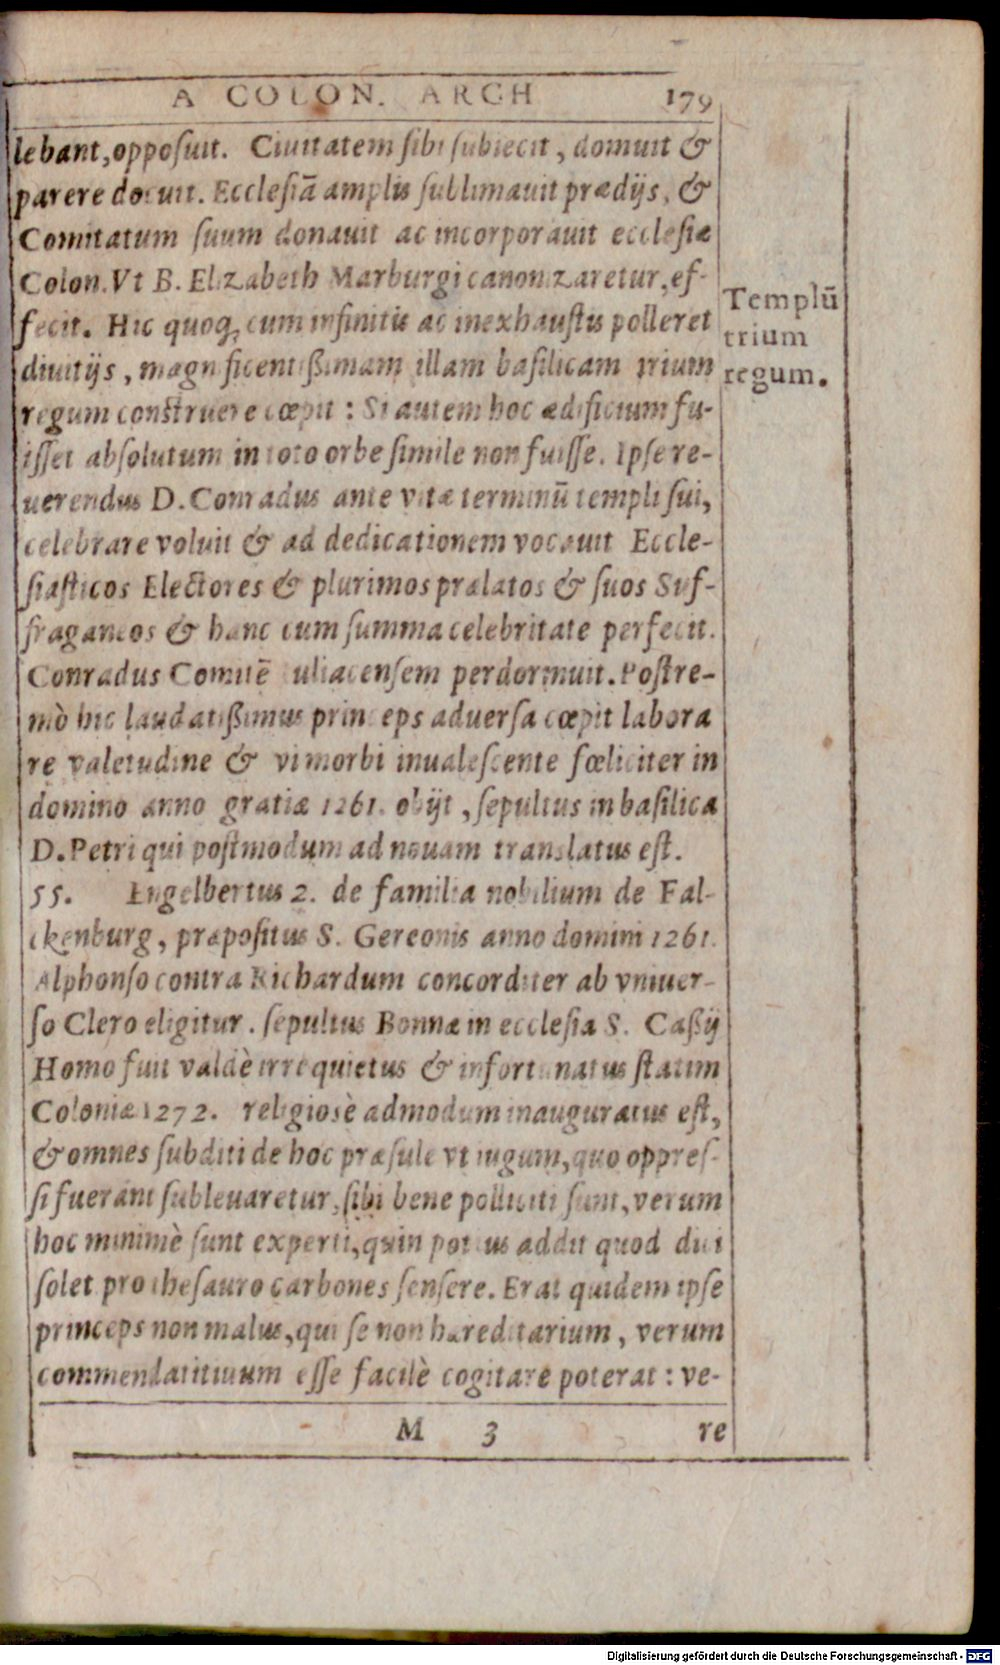 A COLON. ARCH 179
lebant, opposuit. Ciuitatem sibi subiecit, domuit &
parere docuit. Ecclesiā amplis sublimauit prædijs, &
Comitatum suum donauit ac incorporauit ecclesiæ
Colon. Vt B. Elizabeth Marburgi canonizaretur, ef-
fecit. Hic quoq; cum infinitis ac inexhaustis polleret
diuitijs, magnificentißimam illam basilicam trium
regum construere cœpit: Si autem hoc ædificium fu-
isset absolutum in toto orbe simile non fuisse. Ipse re-
uerendus D. Conradus ante vitæ terminū templi sui,
celebrare voluit & ad dedicationem vocauit Eccle-
siasticos Electores & plurimos prælatos & suos Suf-
fraganeos & hanc cum summa celebritate perfecit.
Conradus Comitē Iuliacensem perdormuit. Postre-
mò hic laudatißimus princeps aduersa cœpit labora
re valetudine & vi morbi inualescente fœliciter in
domino anno gratiæ 1261. obijt, sepultus in basilica
D. Petri qui postmodum ad nouam translatus est.
55. Engelbertus 2. de familia nobilium de Fal-
ckenburg, præpositus S. Gereonis anno domini 1261.
Alphonso contra Richardum concorditer ab vniuer-
so Clero eligitur. sepultus Bonnæ in ecclesia S. Caßij
Homo fuit valdè irrequietus & infortunatus statim
Coloniæ 1272. religiosè admodum inauguratus est,
& omnes subditi de hoc præsule vt iugum, quo oppres-
si fuerant subleuaretur, sibi bene polliciti sunt, verum
hoc minimè sunt experti, quin potius addit quod dici
solet pro thesauro carbones sensere. Erat quidem ipse
princeps non malus, qui se non hæreditarium, verum
commendatitiuum esse facilè cogitare poterat: ve-
M 3 re
Templū
trium
regum.
Digitalisierung gefördert durch die Deutsche Forschungsgemeinschaft - DFG